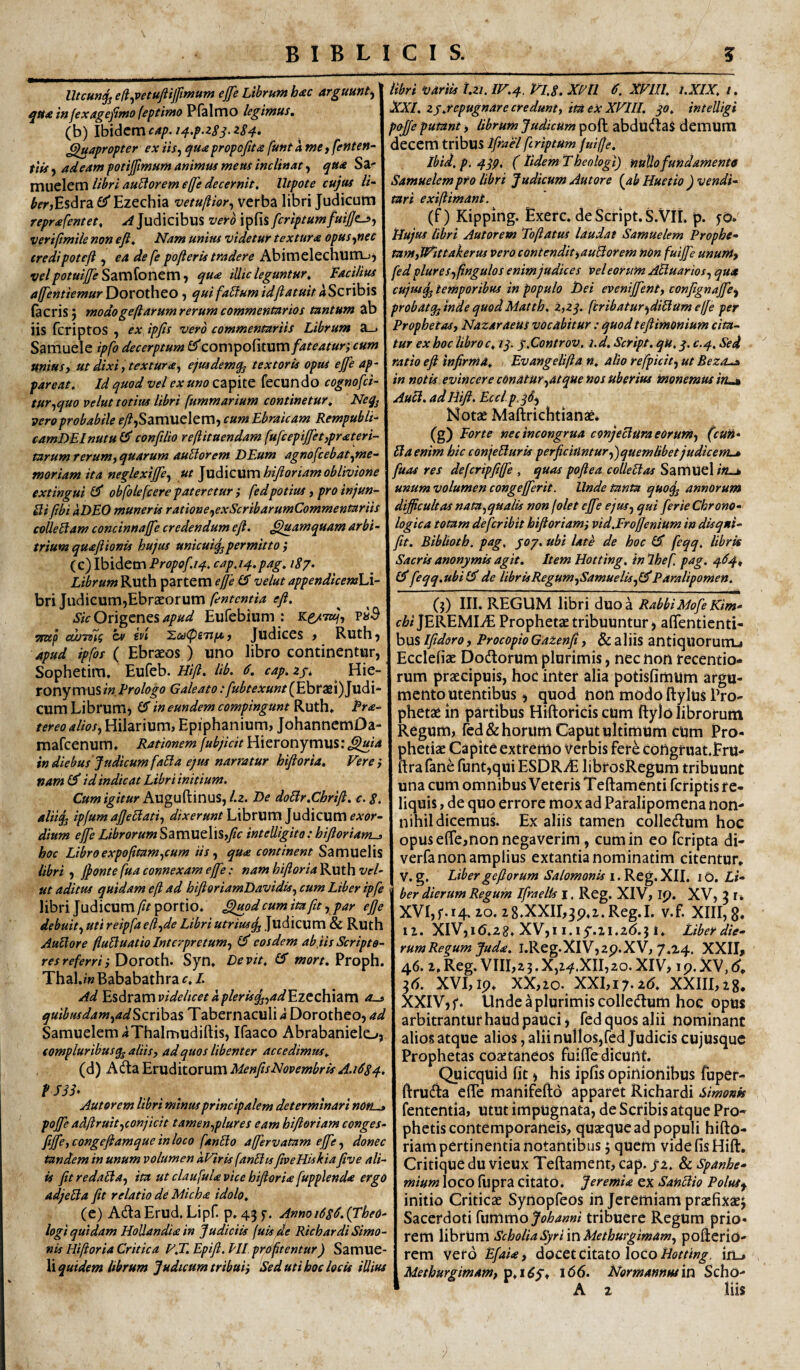 BIBLICIS. 3
Utcunq; est,vetustissimum esse Librum hæc arguunt,
quæ in sexagesimo septimo Psalmo legimus.
(b) Ibidem cap. 14.p.283. 284.
Quapropter ex iis, quæ proposita sunt à me, senten-
tiis, adeam potissimum animus meus inclinat, quæ Sa-
muelem libri auctorem esse decernit. Utpote cujus li-
ber,Esdra & Ezechia vetustior, verba libri Judicum
repræsentet. A Judicibus verò ipsis scriptum fuisse,
verisimile non est. Nam unius videtur texturæ opus,nec
credi potest, ea de se posteris tradere Abimelechum,
vel potuisse Samsonem, quæ illic leguntur. Facilius
assentiemur Dorotheo, qui factum id statuit à Scribis
sacris; modo gestarum rerum commentarios tantum ab
iis scriptos, ex ipsis verò commentariis Librum a
Samuele ipso decerptum & compositum fateatur; cum
unius, ut dixi, texturæ, ejusdemq; textoris opus esse ap-
pareat. Id quod vel ex uno capite secundo cognosci-
tur,quo velut totius libri summarium continetur. Neq;
vero probabile est,Samuelem, cum Ebraicam Rempubli-
cam DEI nutu & consilio restituendam suscepisset,præteri-
tarum rerum, quarum auctorem DEum agnoscebat,me-
moriam ita neglexisse, ut Judicum historiam oblivione
extingui & obsolescere pateretur; sed potius, pro injun-
cti sibi à DEO muneris ratione,exScribarumCommentariis
collectam concinnasse credendum est. Quamquam arbi-
trium quæstionis hujus unicuiq; permitto;
(c) Ibidem Propos.14. cap.14.pag. 187.
Librum Ruth partem esse & velut appendicem Li-
bri Judicum,Ebræorum sententia est.
Sic Origenes apud Eusebium:
Judices, Ruth,
apud ipsos ( Ebræos ) uno libro continentur,
Sophetim. Euseb. Hist. lib. 6. cap. 25. Hie-
ronymus in Prologo Galeato: subtexunt (Ebræi) Judi-
cum Librum, & in eundem compingunt Ruth. Præ-
tereo alios, Hilarium, Epiphanium, JohannemDa-
mascenum. Rationem subjicit Hieronymus: Quia
in diebus Judicum facta ejus narratur historia. Vere;
nam & id indicat Libri initium.
Cum igitur Augustinus, l.2. De doctr.Christ. c. 8.
aliiq; ipsum assectati, dixerunt Librum Judicum exor-
dium esse Librorum Samuelis,sic intelligito: historiam
hoc Libro expositam,cum iis, quæ continent Samuelis
libri, sponte sua connexam esse: nam historia Ruth vel-
ut aditus quidam est ad historiamDavidis, cum Liber ipse
libri Judicum sit portio. Quod cum ita sit, par esse
debuit, uti reipsa est,de Libri utriusq; Judicum & Ruth
Auctore fluctuatio Interpretum, & eosdem ab iis Scripto-
res referri; Doroth. Syn. De vit. & mort. Proph.
Thal.in Bababathra c. 1.
Ad Esdram videlicet à plerisq;,ad Ezechiam a
quibusdam,ad Scribas Tabernaculi à Dorotheo, ad
Samuelem à Thalmudistis, Isaaco Abrabaniele,
compluribusq; aliis, ad quos libenter accedimus.
(d) Acta Eruditorum Mensis Novembris A.1684.
p 533.
Autorem libri minus principalem determinari non
posse adstruit,conjicit tamen,plures eam historiam conges-
sisse, congestamque in loco sancto asservatam esse, donec
tandem in unum volumen à Viris sanctis sive Hiskia sive ali-
is sit redacta, ita ut clausulæ vice historiæ supplendæ ergo
adjecta sit relatio de Micha idolo.
(e) Acta Erud. Lips. p. 435. Anno 1686. (Theo-
logi quidam Hollandiæ in Judiciis suis de Richardi Simo-
nis Historia Critica V.T. Epist. VII. profitentur) Samue-
li quidem librum Judicum tribui; Sed uti hoc locis illius
libri variis 1.21. IV.4. VI.8. XVII 6. XVIII. 1.XIX. 1.
XXI. 25.repugnare credunt, ita ex XVIII. 30. intelligi
posse putant, librum Judicum post abductas demum
decem tribus Israël scriptum fuisse.
Ibid. p. 439. ( Iidem Theologi) nullo fundamento
Samuelem pro libri Judicum Autore (ab Huetio ) vendi-
tari existimant.
(f) Kipping. Exerc. de Script. S.VII. p. 50.
Hujus libri Autorem Tostatus laudat Samuelem Prophe-
tam,Wittakerus vero contendit,auctorem non fuisse unum,
sed plures,singulos enim judices vel eorum Actuarios, quæ
cujusq; temporibus in populo Dei evenissent, consignasse,
probatq; inde quod Matth. 2,23. scribatur,dictum esse per
Prophetas, Nazaræus vocabitur: quod testimonium cita-
tur ex hoc libro c. 13. 5.Controv. 1.d. Script. qu. 3. c.4. Sed
ratio est infirma. Evangelista n. alio respicit, ut Beza
in notis evincere conatur,atque nos uberius monemus in
Auct. ad Hist. Eccl.p.36,
Notæ Mastrichtianæ.
(g) Forte nec incongrua conjectura eorum, (cun-
cta enim hic conjecturis perficiuntur,)quemlibet judicem
suas res descripsisse, quas postea collectas Samuel in
unum volumen congesserit. Unde tanta quoq; annorum
difficultas nata,qualis non solet esse ejus, qui serie Chrono-
logica totam describit historiam; vid.Frossenium in disqui-
sit. Biblioth. pag. 507. ubi late de hoc & seqq. libris
Sacris anonymis agit. Item Hotting. in Thes. pag. 464.
& seqq.ubi & de libris Regum,Samuelis,& Paralipomen.
(3) III. REGUM libri duo à Rabbi Mose Kim-
chi JEREMIÆ Prophetæ tribuuntur, assentienti-
bus Isidoro, Procopio Gazensi, & aliis antiquorum
Ecclesiæ Doctorum plurimis, nec non recentio-
rum præcipuis, hoc inter alia potissimùm argu-
mento utentibus, quod non modo stylus Pro-
phetæ in partibus Historicis cùm stylo librorum
Regum, sed & horum Caput ultimum cùm Pro-
phetiæ Capite extremo verbis ferè congruat.Fru-
stra sanè sunt,qui ESDRÆ librosRegum tribuunt
una cum omnibus Veteris Testamenti scriptis re-
liquis, de quo errore mox ad Paralipomena non-
nihil dicemus. Ex aliis tamen collectum hoc
opus esse,non negaverim, cum in eo scripta di-
versa non amplius extantia nominatim citentur,
v. g. Liber gestorum Salomonis 1. Reg. XII. 10. Li-
ber dierum Regum Israelis 1. Reg. XIV, 19. XV, 31.
XVI,5.14. 20. 28.XXII,39.2. Reg.I. v.f. XIII, 8.
12. XIV,16.28. XV,11.15.21.26.31. Liber die-
rum Regum Judæ. 1.Reg.XIV,29.XV, 7.24. XXII,
46. 2. Reg. VIII,23.X,24.XII,20. XIV, 19.XV,6.
36. XVI,19. XX,20. XXI,17.26. XXIII,28.
XXIV,5. Unde à plurimis collectum hoc opus
arbitrantur haud pauci, sed quos alii nominant
alios atque alios, alii nullos,sed Judicis cujusque
Prophetas coætaneos fuisse dicunt.
Quicquid sit, his ipsis opinionibus super-
structa esse manifestò apparet Richardi Simonis
sententia, utut impugnata, de Scribis atque Pro-
phetis contemporaneis, quæque ad populi histo-
riam pertinentia notantibus; quem vide sis Hist.
Critique du vieux Testament, cap. 52. & Spanhe-
mium loco supra citato. Jeremiæ ex Sanctio Polus,
initio Criticæ Synopseos in Jeremiam præfixæ;
Sacerdoti summo Johanni tribuere Regum prio-
rem librum Scholia Syri in Methurgimam, posterio-
rem verò Esaiæ, docet citato loco Hotting. in
Methurgimam, p.165. 166. Normannus in Scho-
A 2 liis